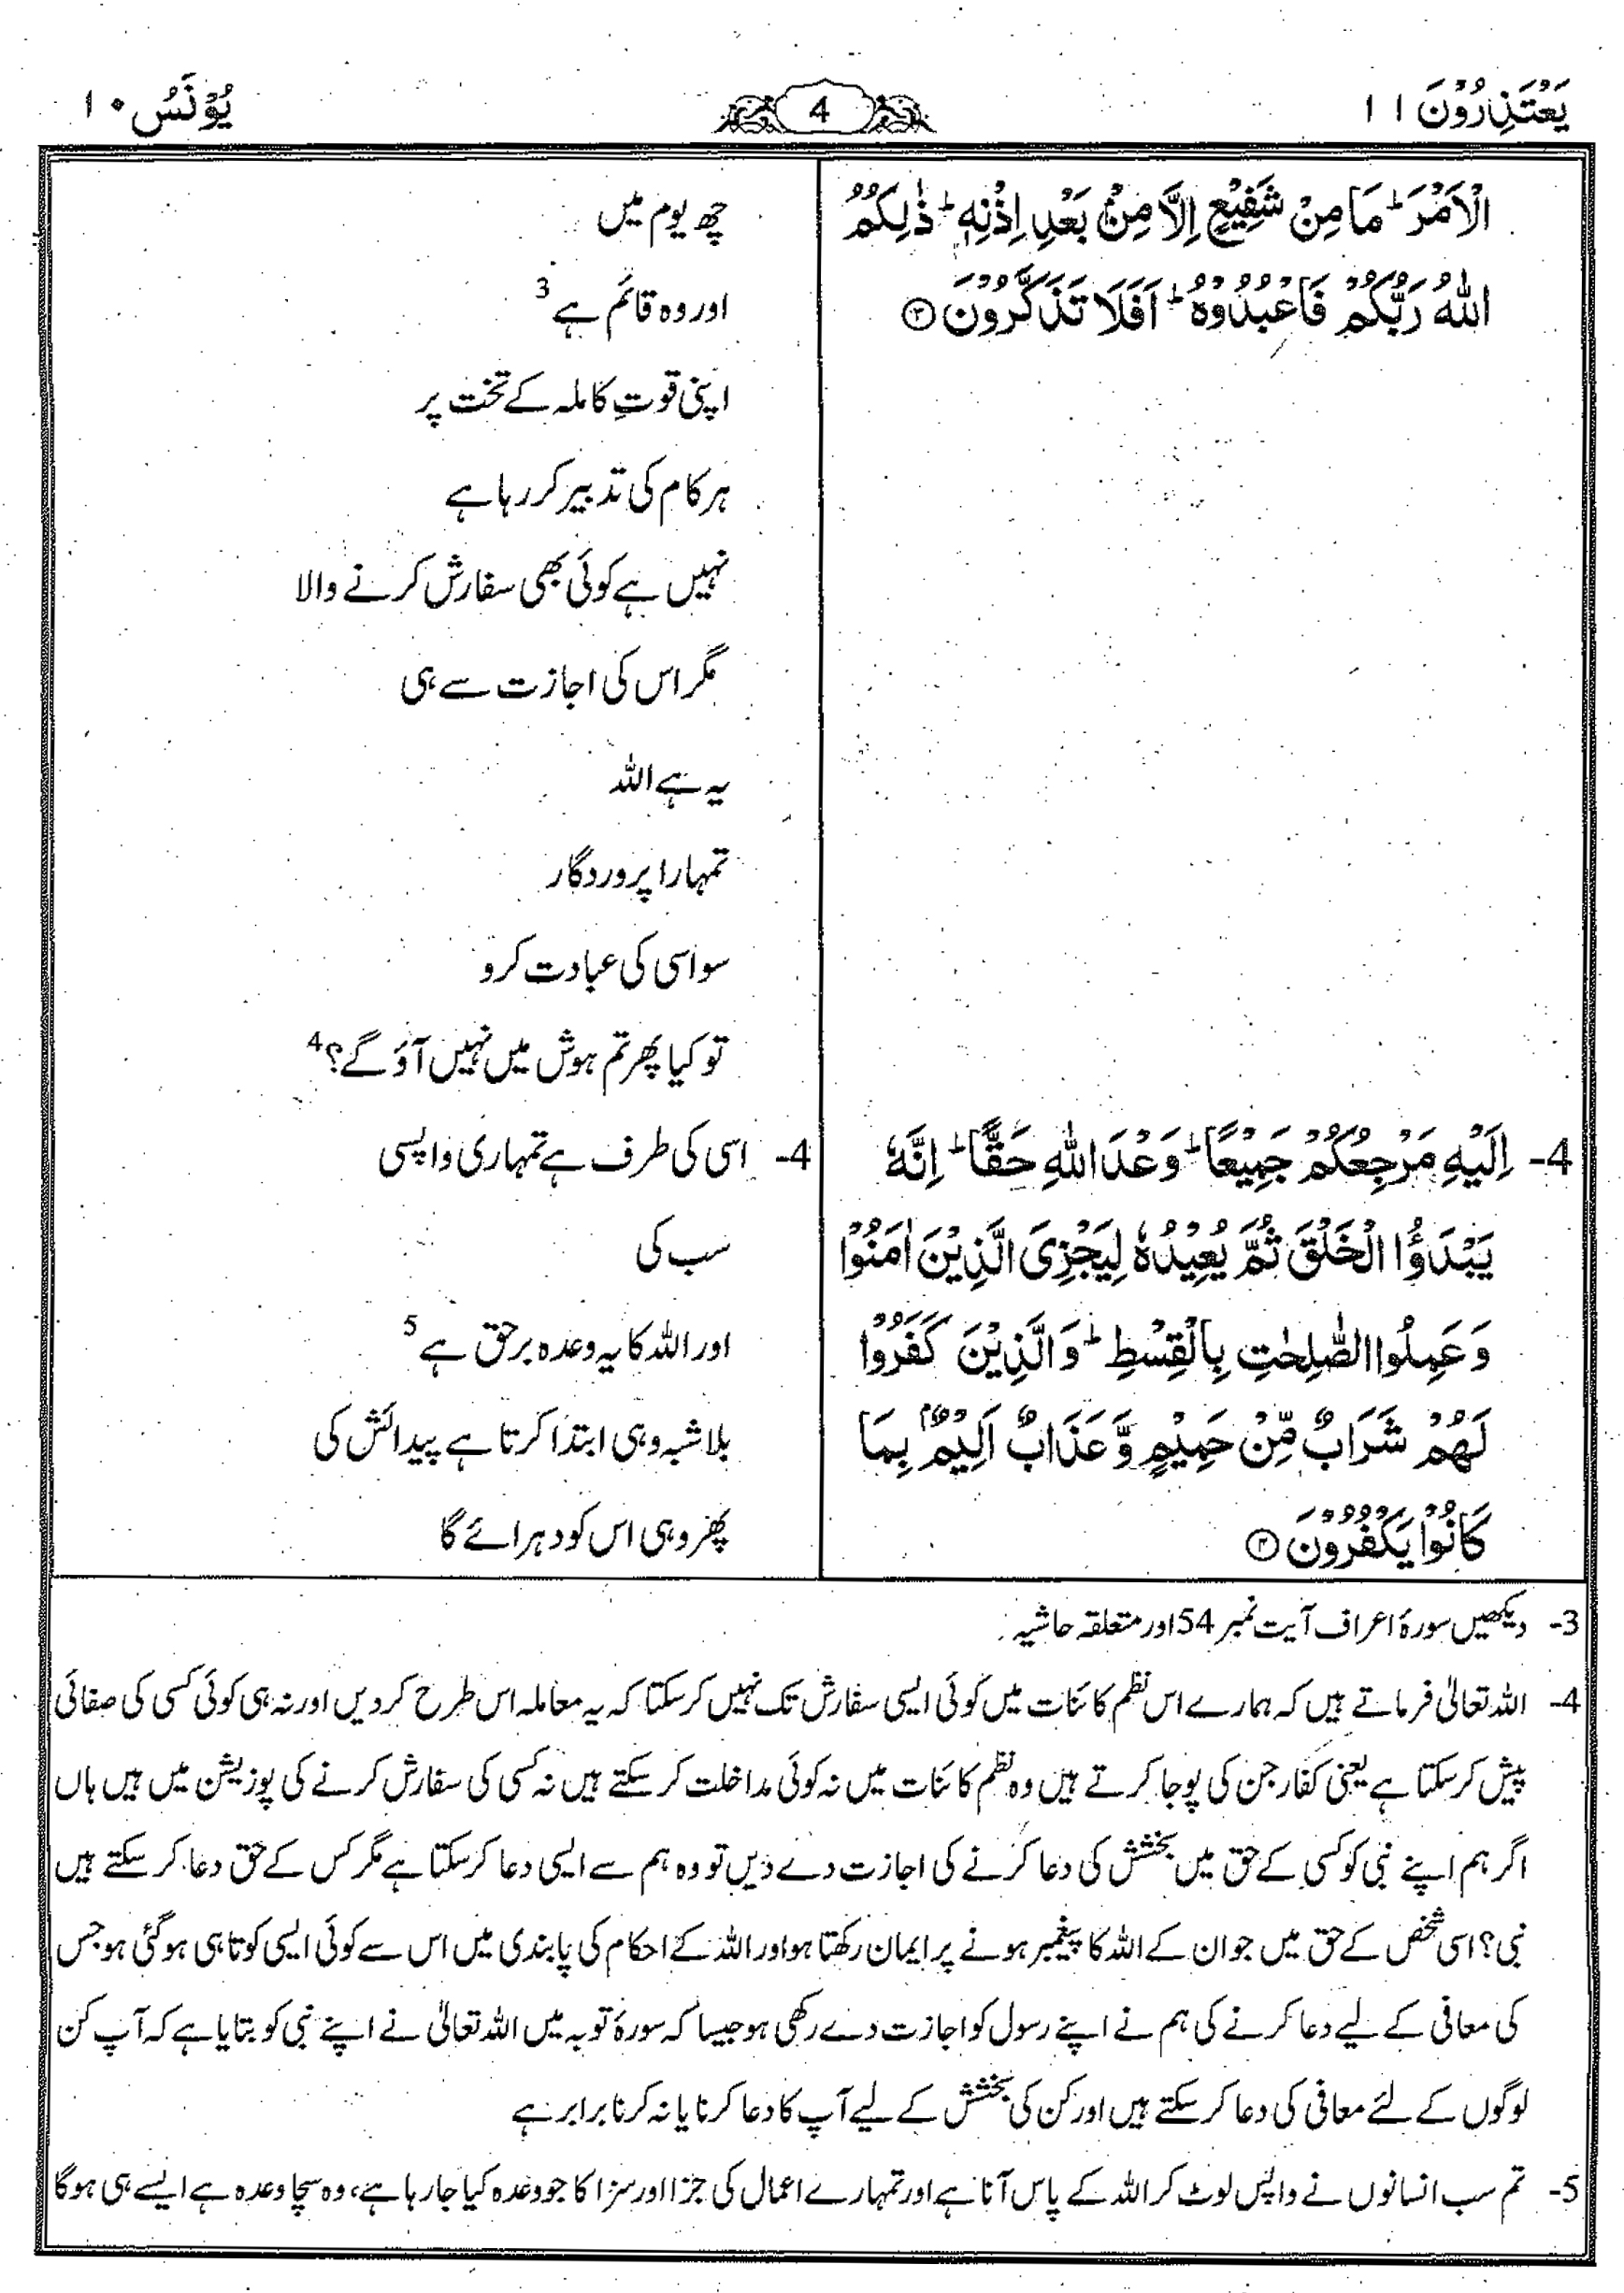 یَعْتَذِرُوْنَ ۱۱
4
یُوْنَسُ ۱۰
الْاَمْرَ ؕ مَا مِنْ شَفِیْعٍ اِلَّا مِنْۢ بَعْدِ اِذْنِهٖ ؕ ذٰلِكُمُ
اللّٰهُ رَبُّكُمْ فَاعْبُدُوْهُ ؕ اَفَلَا تَذَكَّرُوْنَ ۝۳
4- اِلَیْهِ مَرْجِعُكُمْ جَمِیْعًا ؕ وَعْدَ اللّٰهِ حَقًّا ؕ اِنَّهٗ
یَبْدَؤُا الْخَلْقَ ثُمَّ یُعِیْدُهٗ لِیَجْزِیَ الَّذِیْنَ اٰمَنُوْا
وَعَمِلُوا الصّٰلِحٰتِ بِالْقِسْطِ ؕ وَالَّذِیْنَ كَفَرُوْا
لَهُمْ شَرَابٌ مِّنْ حَمِیْمٍ وَّعَذَابٌ اَلِیْمٌۢ بِمَا
كَانُوْا یَكْفُرُوْنَ ۝۴
چھ یوم میں
اور وہ قائم ہے 3
اپنی قوتِ کاملہ کے تخت پر
ہر کام کی تدبیر کر رہا ہے
نہیں ہے کوئی بھی سفارش کرنے والا
مگر اس کی اجازت سے ہی
یہ ہے اللہ
تمہارا پروردگار
سو اسی کی عبادت کرو
تو کیا پھر تم ہوش میں نہیں آؤ گے؟ 4
4- اسی کی طرف ہے تمہاری واپسی
سب کی
اور اللہ کا یہ وعدہ برحق ہے 5
بلاشبہ وہی ابتدا کرتا ہے پیدائش کی
پھر وہی اس کو دہرائے گا
3- دیکھیں سورۂ اعراف آیت نمبر 54 اور متعلقہ حاشیہ
4- اللہ تعالیٰ فرماتے ہیں کہ ہمارے اس نظم کائنات میں کوئی ایسی سفارش تک نہیں کر سکتا کہ یہ معاملہ اس طرح کر دیں اور نہ ہی کوئی کسی کی صفائی
پیش کر سکتا ہے یعنی کفار جن کی پوجا کرتے ہیں وہ نظم کائنات میں نہ کوئی مداخلت کر سکتے ہیں نہ کسی کی سفارش کرنے کی پوزیشن میں ہیں ہاں
اگر ہم اپنے نبی کو کسی کے حق میں بخشش کی دعا کرنے کی اجازت دے دیں تو وہ ہم سے ایسی دعا کر سکتا ہے مگر کس کے حق دعا کر سکتے ہیں
نبی؟ اسی شخص کے حق میں جو ان کے اللہ کا پیغمبر ہونے پر ایمان رکھتا ہو اور اللہ کے احکام کی پابندی میں اس سے کوئی ایسی کوتاہی ہو گئی ہو جس
کی معافی کے لیے دعا کرنے کی ہم نے اپنے رسول کو اجازت دے رکھی ہو جیسا کہ سورۂ توبہ میں اللہ تعالیٰ نے اپنے نبی کو بتایا ہے کہ آپ کن
لوگوں کے لئے معافی کی دعا کر سکتے ہیں اور کن کی بخشش کے لیے آپ کا دعا کرنا یا نہ کرنا برابر ہے
5- تم سب انسانوں نے واپس لوٹ کر اللہ کے پاس آنا ہے اور تمہارے اعمال کی جزا اور سزا کا جو وعدہ کیا جا رہا ہے، وہ سچا وعدہ ہے ایسے ہی ہوگا